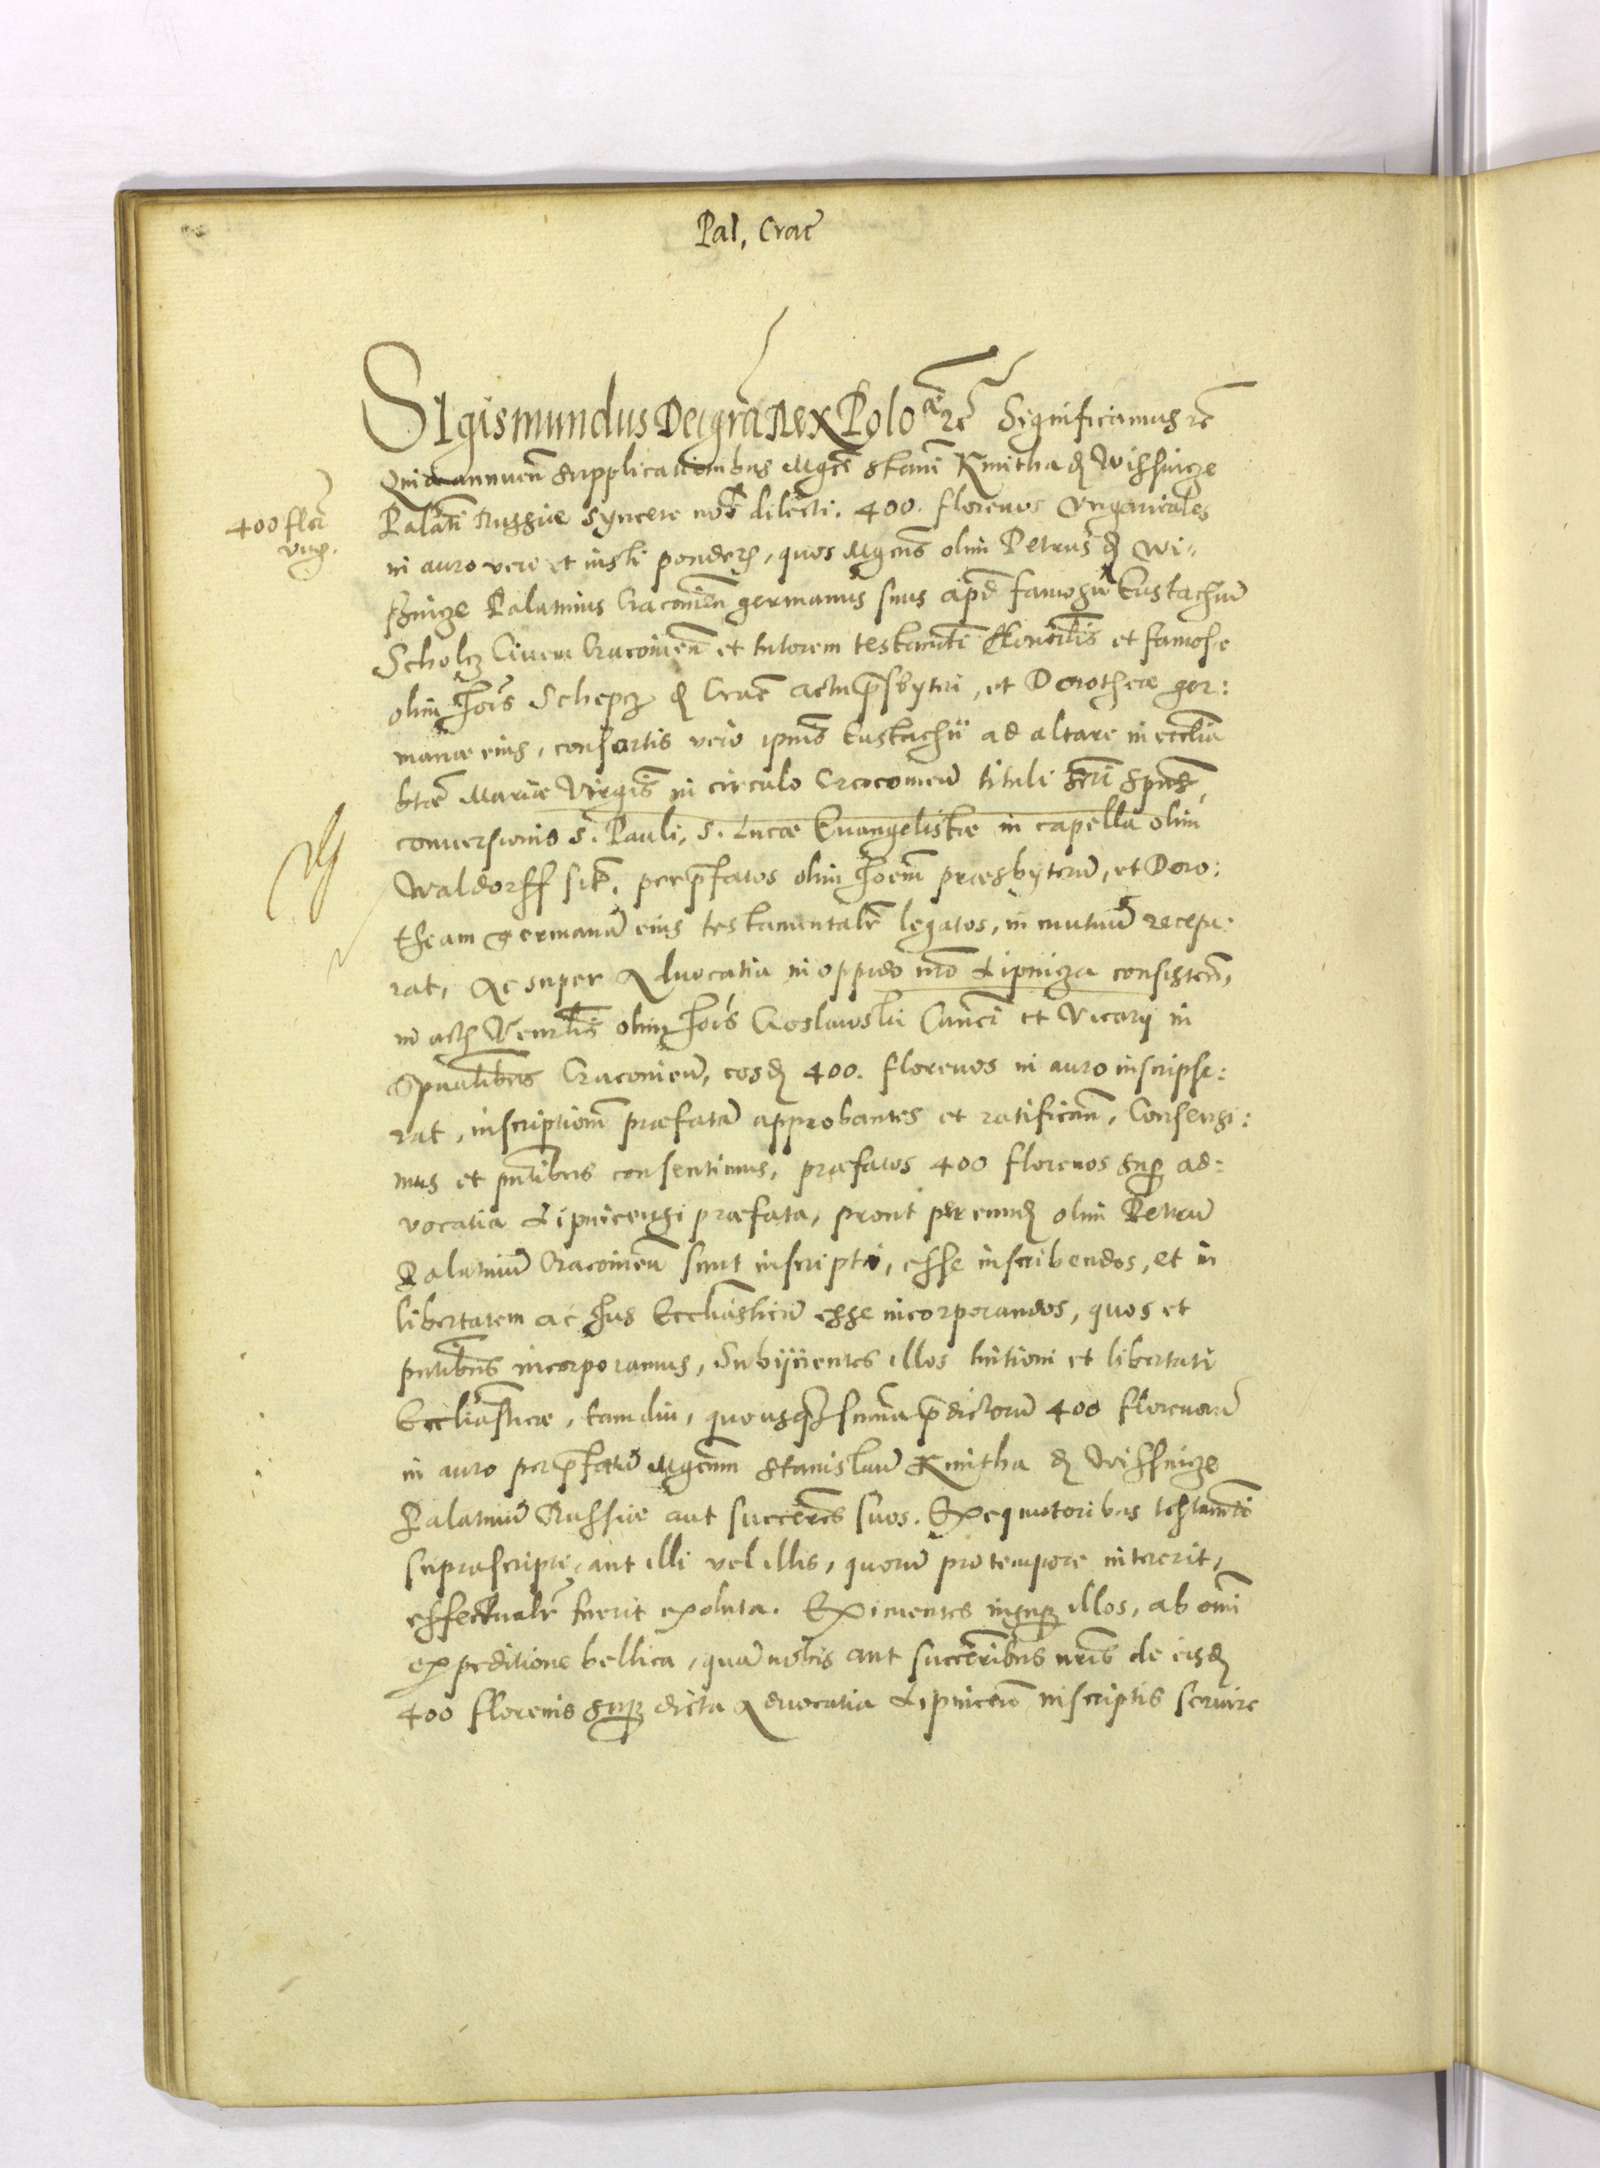 Pal. Crac̄
Sigismundus Dei gr̄a Rex Poloā rc̄ Significamus rc̄
Quia annuen̄ supplicationibus Mgc̄i Stani Kmitha d̄ Wissnicze
400 flor̄
vng.
Palatī Russiae syncere nob̄ dilecti. 400. florenos Vngaricales
in auro veri et iusti ponder̄, quos Mgcus olim Petrus d̄ Wi-
sznicze Palatinus Cracovien̄ germanus suus apd̄ famosū Eustachiū
Scholcz Civem Cracovien̄ et tutorem testamt̄i et famose
olim Joīs Schepcz d̄ Crac̄ actu p̄sbyteri, et Dorotheae ger:
manae eius, consortis vero ipīus Eustachii ad altare in eccliā
btāe Mariae Virgīs in circulo Cracoviēn tituli Sc̄ti Spūs,
conuersionis S. Pauli, S. Lucae Euangelistae in capella olim
Waldorff sit̄, per p̄fatos olim Joēm praesbyterū, et Doro:
theam germanā eius testamentalr̄ legatos, in mutuū recepe-
rat, Ac super Aduocatia in oppido nr̄o Lipnicza consisten̄,
in act̄ Venrl̄is olim Joīs Croslawski Canc̄i et Vicarij in
Spūalibus Cracovien̄, eosd̄ 400. florenos in auro inscripse:
rat, inscriptionē praefatā approbantes et ratifican̄, Consensi:
mus et pn̄tibus consentimus, praefatos 400 florenos sup̄ ad:
vocatia Lipnicensi praefata, prout per eund̄ olim Petrū
Palatinū Cracovien̄ sunt inscripti, esse inscribendos, et in
libertatem ac Jus Eccliāsticū esse incorporandos, quos et
pn̄tibus incorporamus, Subijcientes illos tuitioni et libertati
Eccliāsticae, tamdiu, quousq̄ sum̄a p̄dictorū 400 florenorū
in auro per p̄fatū Mgcum Stanislaū Kmitha d̄ Wissnicze
Palatinū Russiae aut succeres suos. Exequutoribus testamt̄i
suprascripti, aut illi vel illis, quorū pro tempore intererit,
effectualr̄ fuerit exoluta. Eximentes insup̄ illos, ab om̄i
expeditione bellica, quā nobis aut succeribus nr̄is de eisd̄
400 florenis sup̄ dicta Aduocatia Lipnicen̄ inscriptis servire